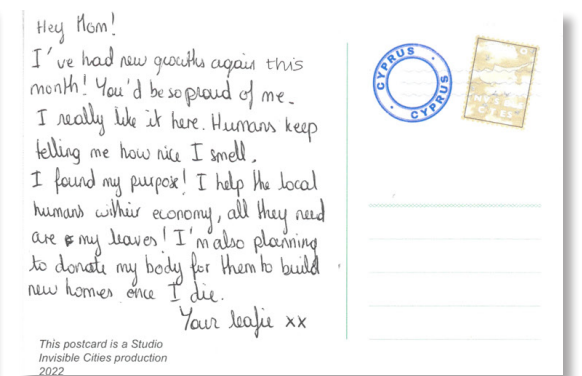 Hey Mom!
I've had new growths again this
month! You'd be so proud of me.
I really like it here. Humans keep
telling me how nice I smell.
I found my purpose! I help the local
humans w/ their economy, all they need
are my leaves! I'm also planning
to donate my body for them to build
new homes once I die.
Your leafie xx
This postcard is a Studio
Invisible Cities production
2022
CYPRUS
CYPRUS